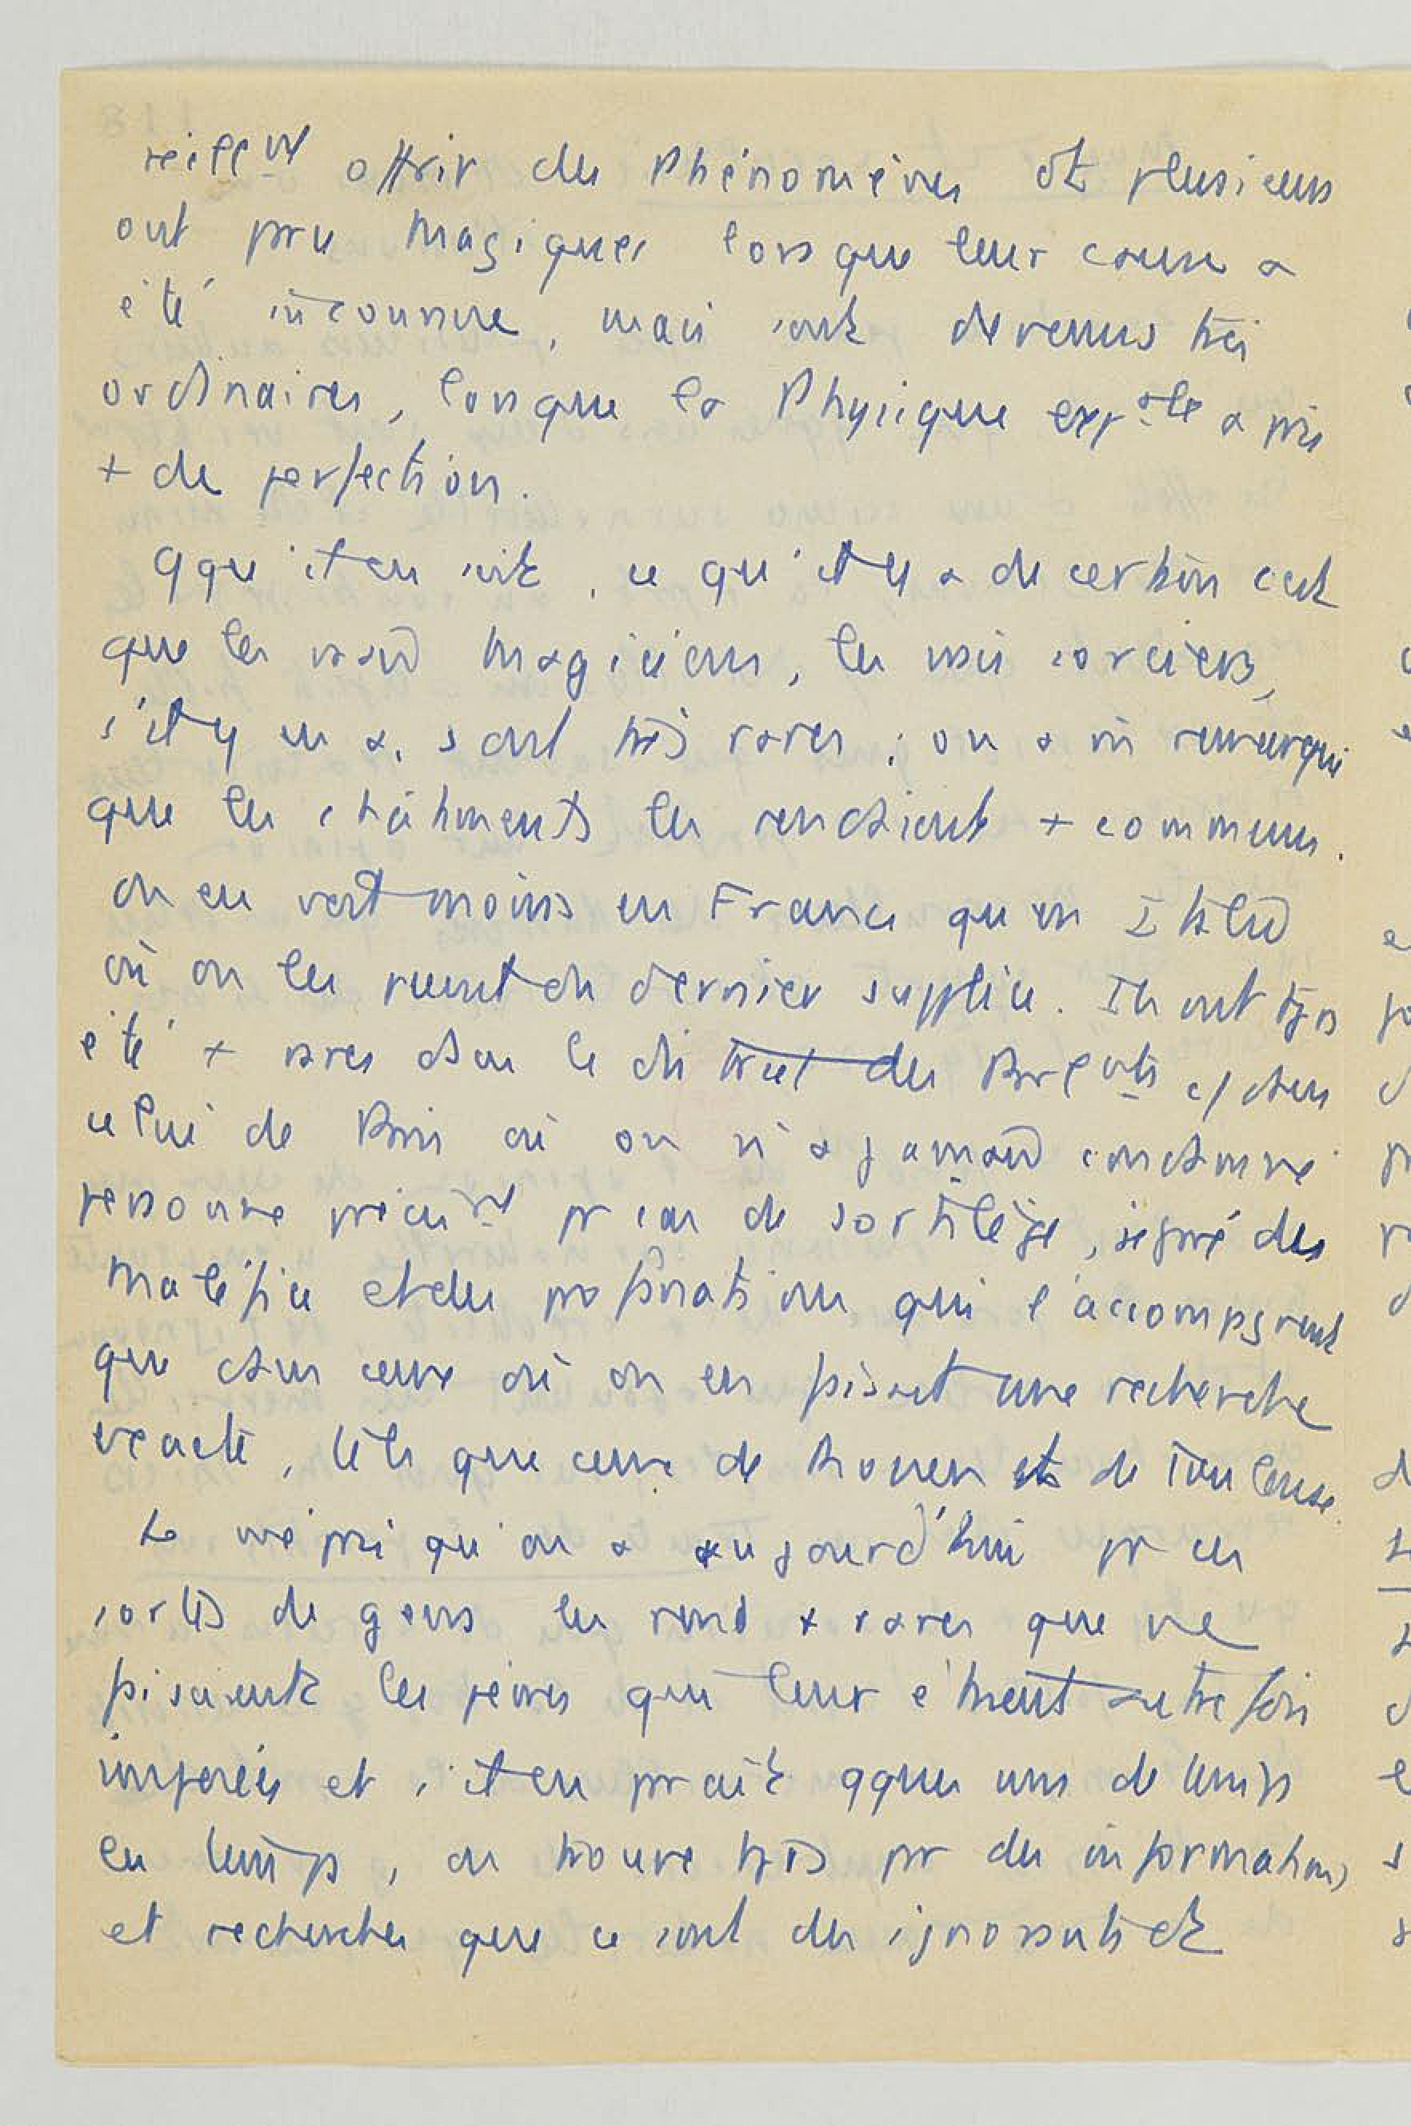 reillemt offrir des Phénomènes dt plusieurs
ont pru magiques lorsque leur cause a
été inconnue, mais sont devenus très
ordinaires, lorsque la Physique expale a pris
+ de perfection.
Qque il en soit, ce qu'il y a de certain c'est
que les vrais magiciens, les vrais sorciers,
s'il y en a, sont très rares ; on a vu remarqué
que les châtiments les rendaient + communs.
On en voit moins en France qu'en Italie
où on les punit du dernier supplice. Ils ont tjrs
été + rares dans le district des Parlents c/ dans
celui de Paris où on n'a jamais condamné
personne précist pr cas de sortilège, séparé des
maléfices et des profanations qui l'accompagnent
que dans ceux où on en faisait une recherche
exacte, tels que ceux de Rouen et de Toulouse.
Le mépris qu'on a aujourd'hui pr ces
sortes de gens les rend + rares que ne
faisaient les peines qui leur étaient autrefois
imposées et s'il en paraît qques uns de temps
en temps, on trouve tjrs pr des informations
et recherches que ce sont des ignorants et